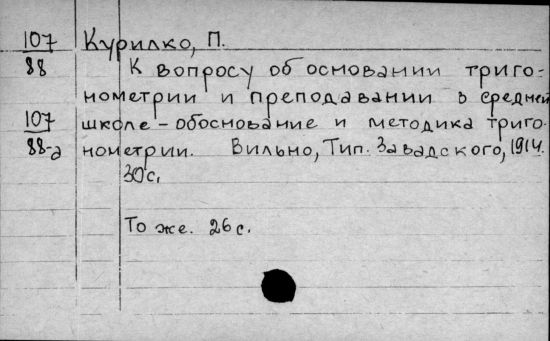 107 Курилко, П.
88 К вопросу об основании триго-
нометрии и преподавании в средней
107 школе - обоснование и методика триго-
88-а нометрии. Вильно, Тип. Завадского, 1914.
30с.
То же. 26с.